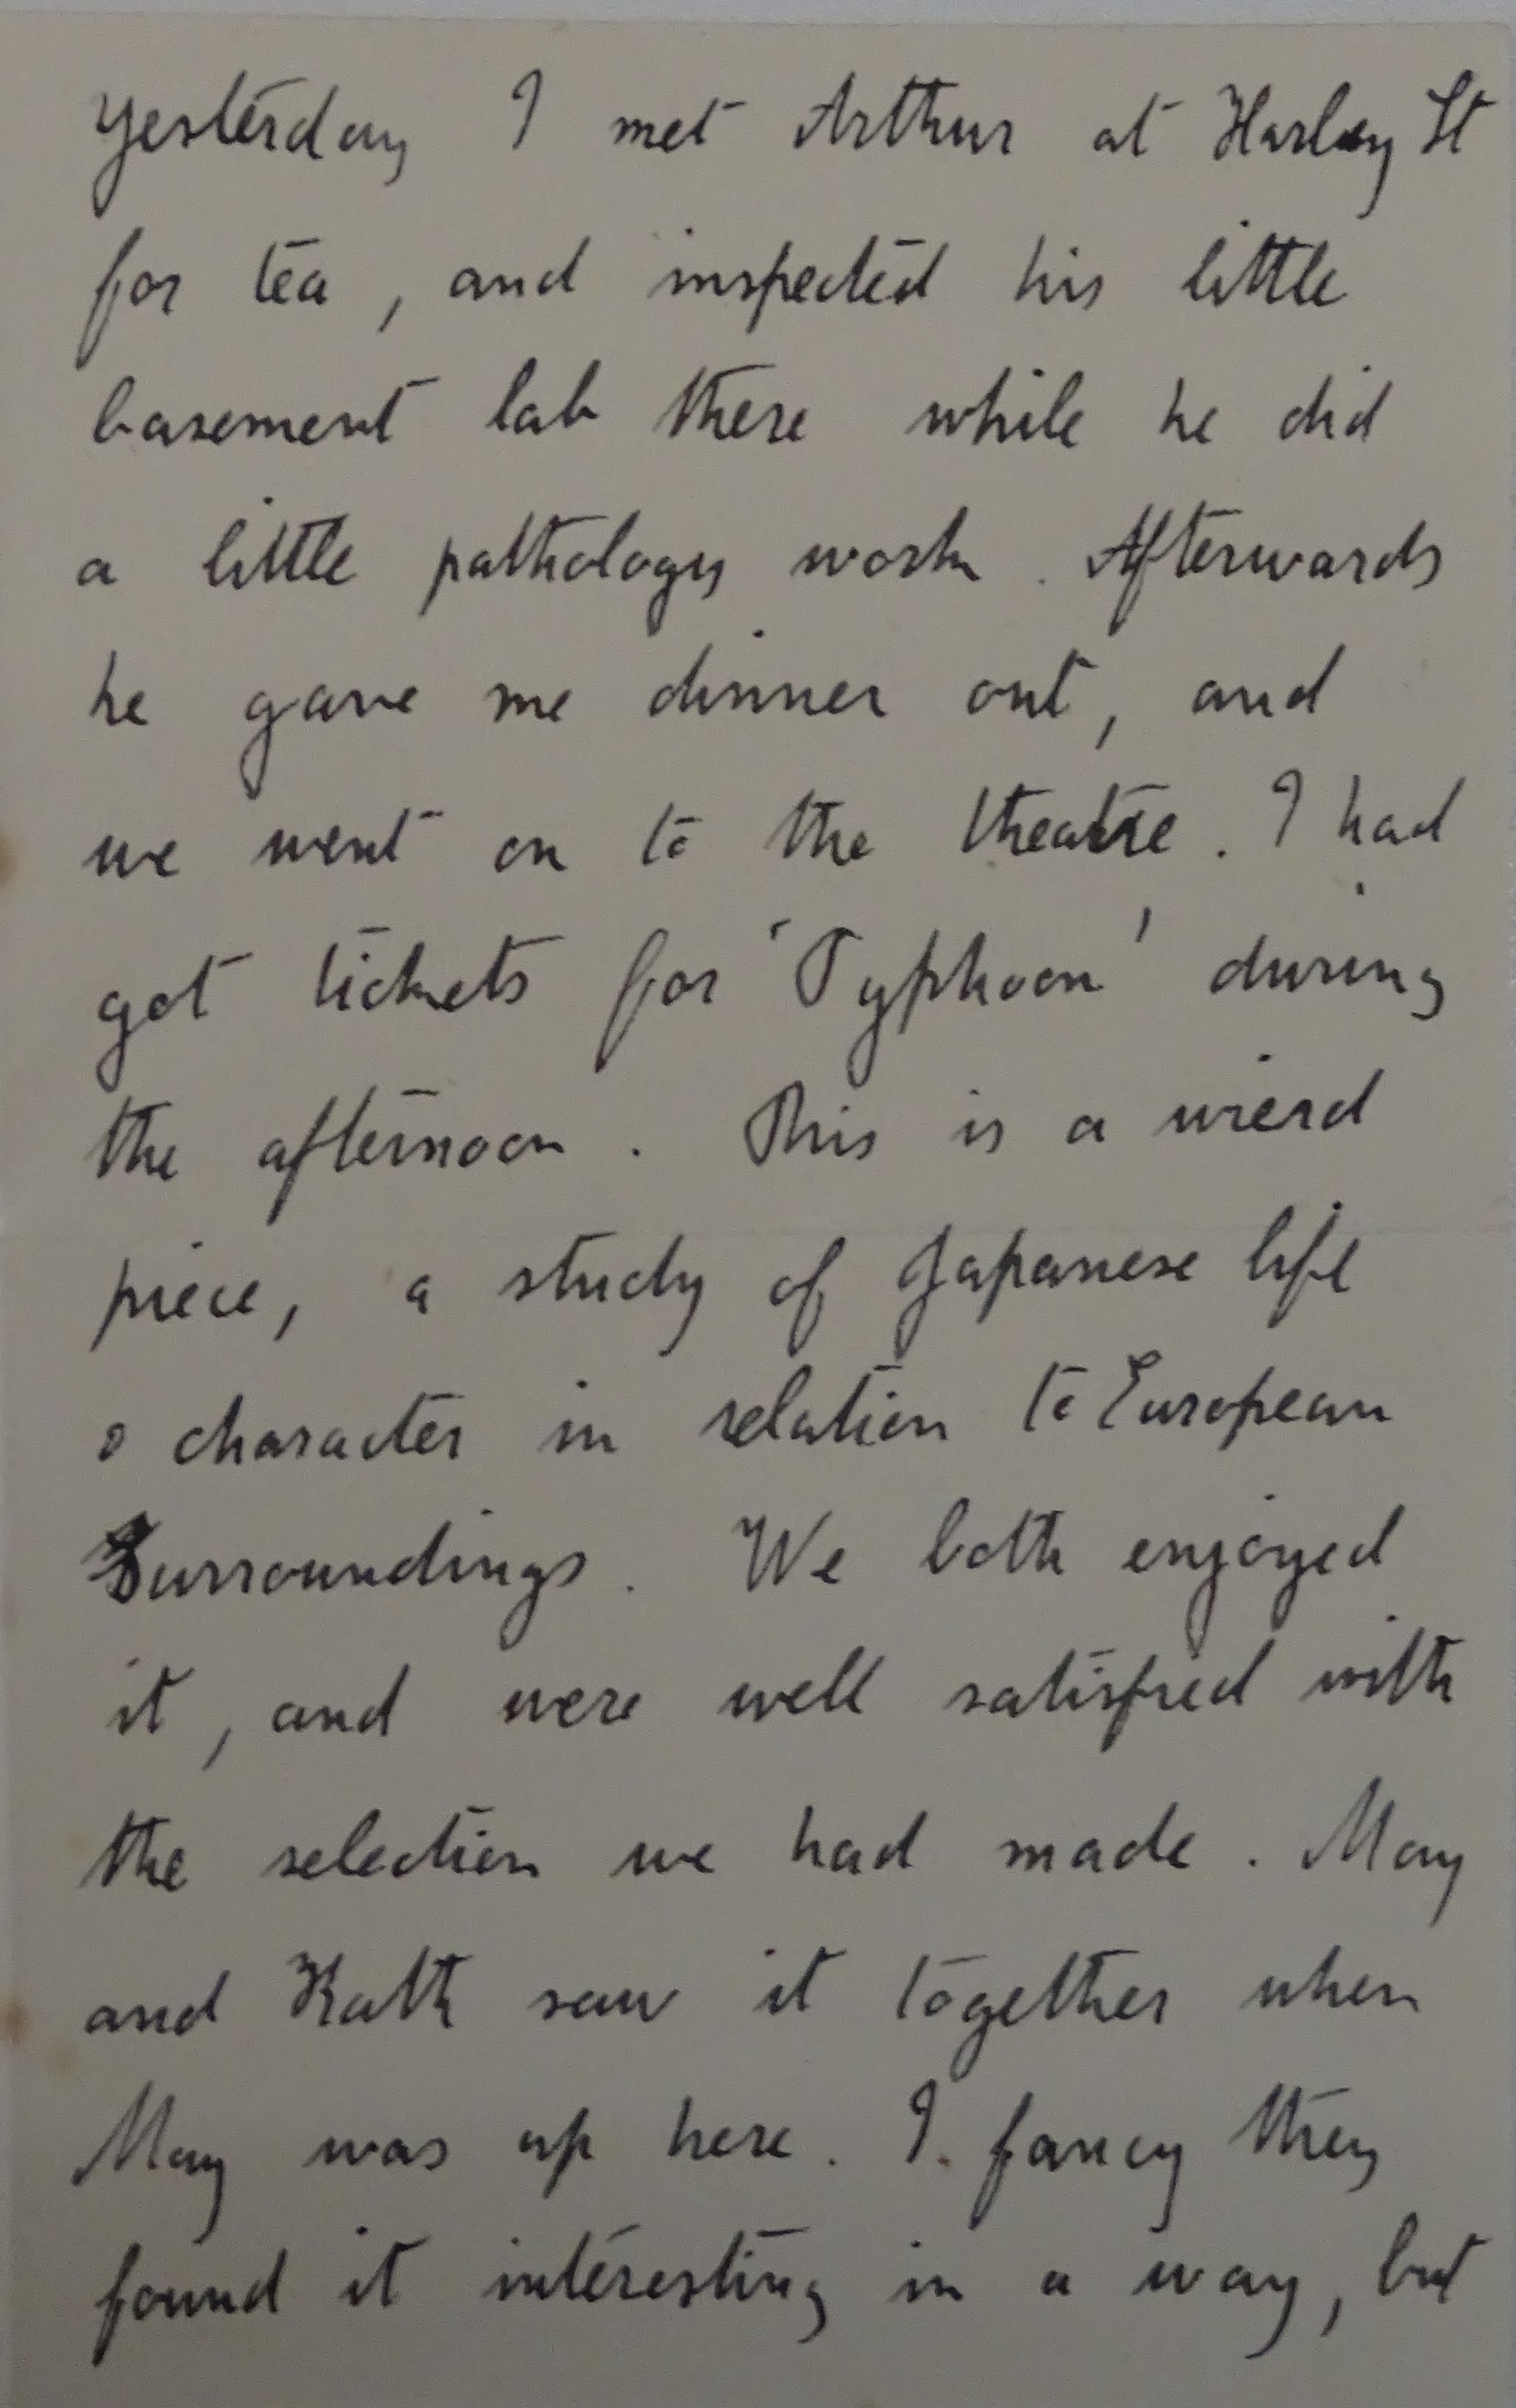 yesterday I met Arthur at Harley St
for tea, and inspected his little
basement lab there while he did
a little pathology work. Afterwards
he gave me dinner out, and
we went on to the theatre. I had
got tickets for 'Typhoon' during
the afternoon. This is a wierd
piece, a study of Japanese life
& character in relation to European
surroundings. We both enjoyed
it, and were well satisfied with
the selection we had made. May
and Kath saw it together when
May was up here. I fancy they
found it interesting in a way, but